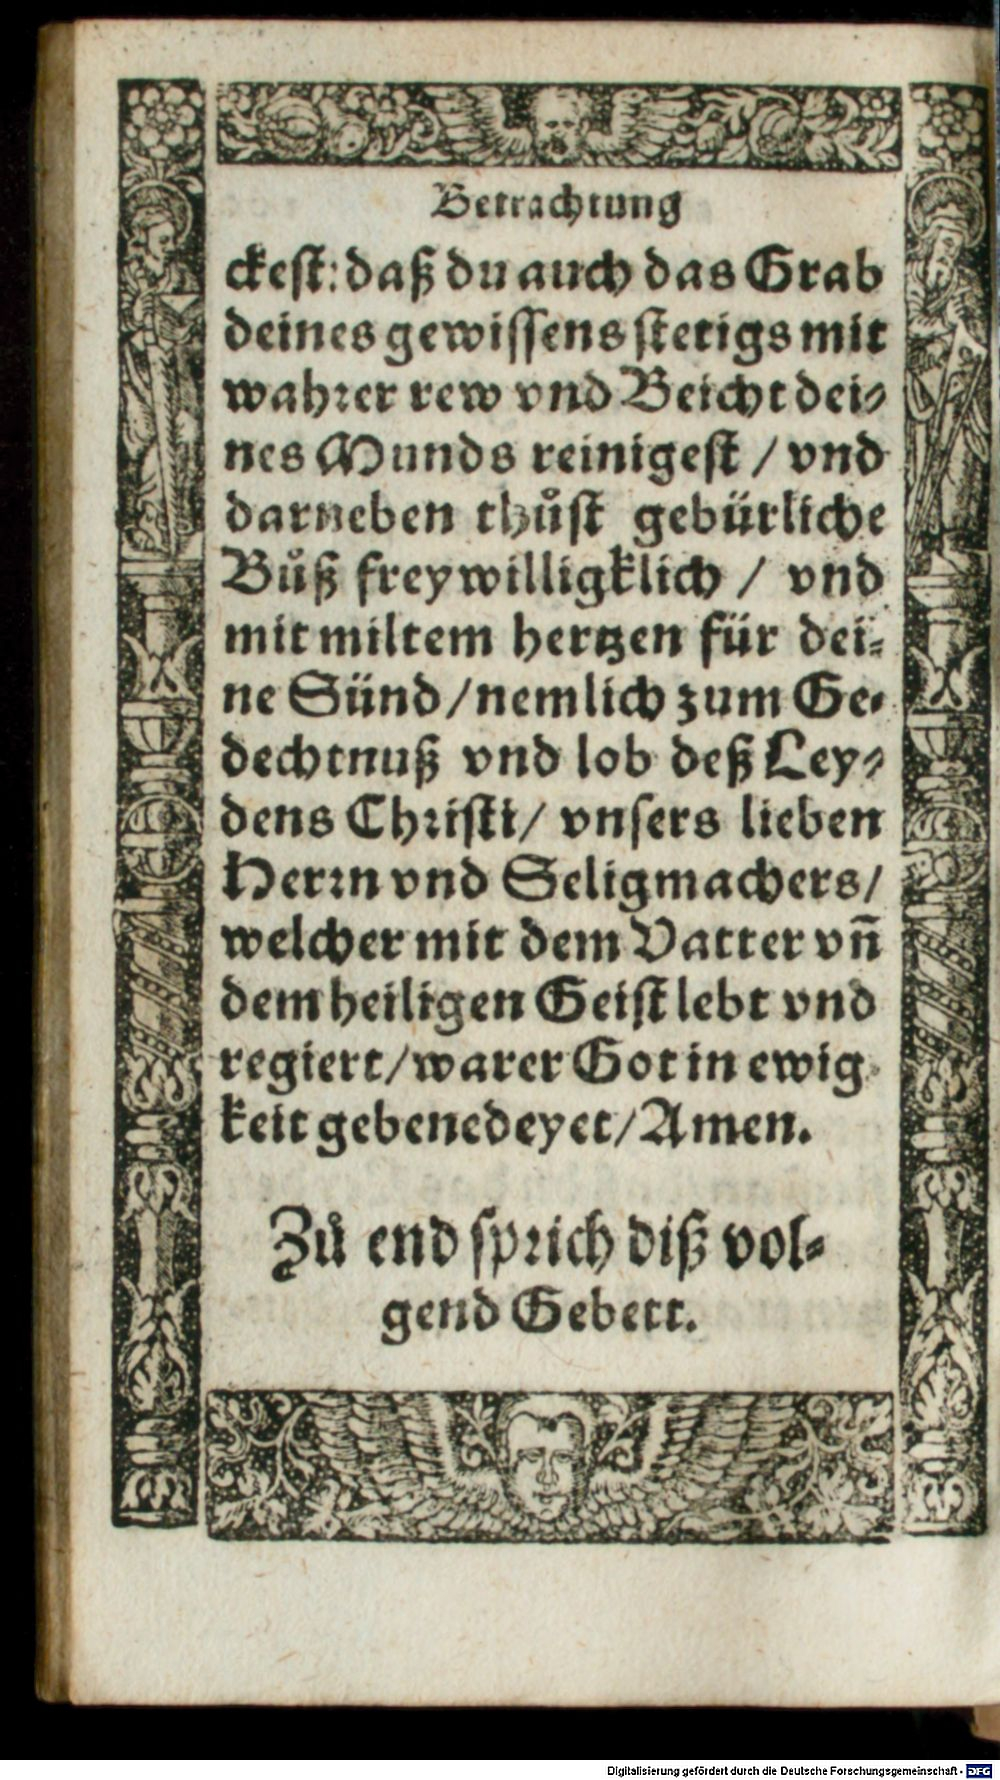 Betrachtung
ckest: daß du auch das Grab
deines gewissens stetigs mit
wahrer rew vnd Beicht dei-
nes Munds reinigest / vnd
darneben thůst gebürliche
Bůß freywilligklich / vnd
mit miltem hertzen für dei-
ne Sünd / nemlich zum Ge-
dechtnuß vnd lob deß Ley-
dens Christi / vnsers lieben
Herrn vnd Seligmachers /
welcher mit dem Vatter vn̄
dem heiligen Geist lebt vnd
regiert / warer Got in ewig-
keit gebenedeyet / Amen.
Zů end sprich diß vol-
gend Gebett.
Digitalisierung gefördert durch die Deutsche Forschungsgemeinschaft - DFG